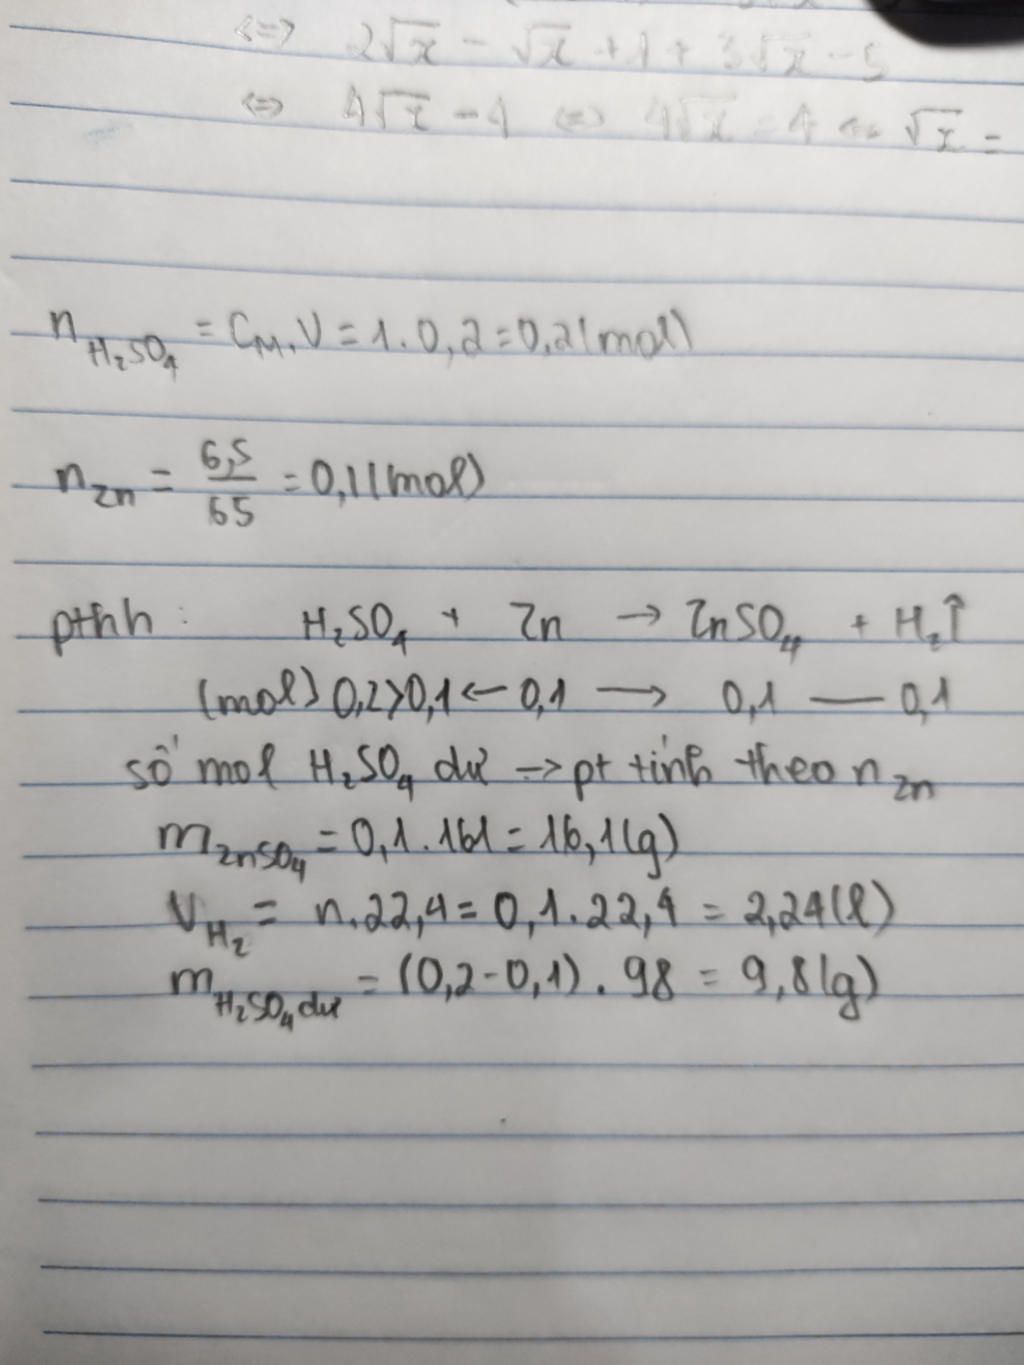 ⇔ 2√x - √x + 1 + 3√x - 5
⇔ 4√x - 4 ⇔ 4√x = 4 ⇔ √x =
n H₂SO₄ = C_M.V = 1.0,2 = 0,2(mol)
n Zn = 6,5/65 = 0,1(mol)
pthh: H₂SO₄ + Zn → ZnSO₄ + H₂↑
(mol) 0,2>0,1 ← 0,1 → 0,1 — 0,1
số mol H₂SO₄ dư → pt tính theo n Zn
m ZnSO₄ = 0,1.161 = 16,1(g)
V H₂ = n.22,4 = 0,1.22,4 = 2,24(l)
m H₂SO₄ dư = (0,2-0,1).98 = 9,8(g)